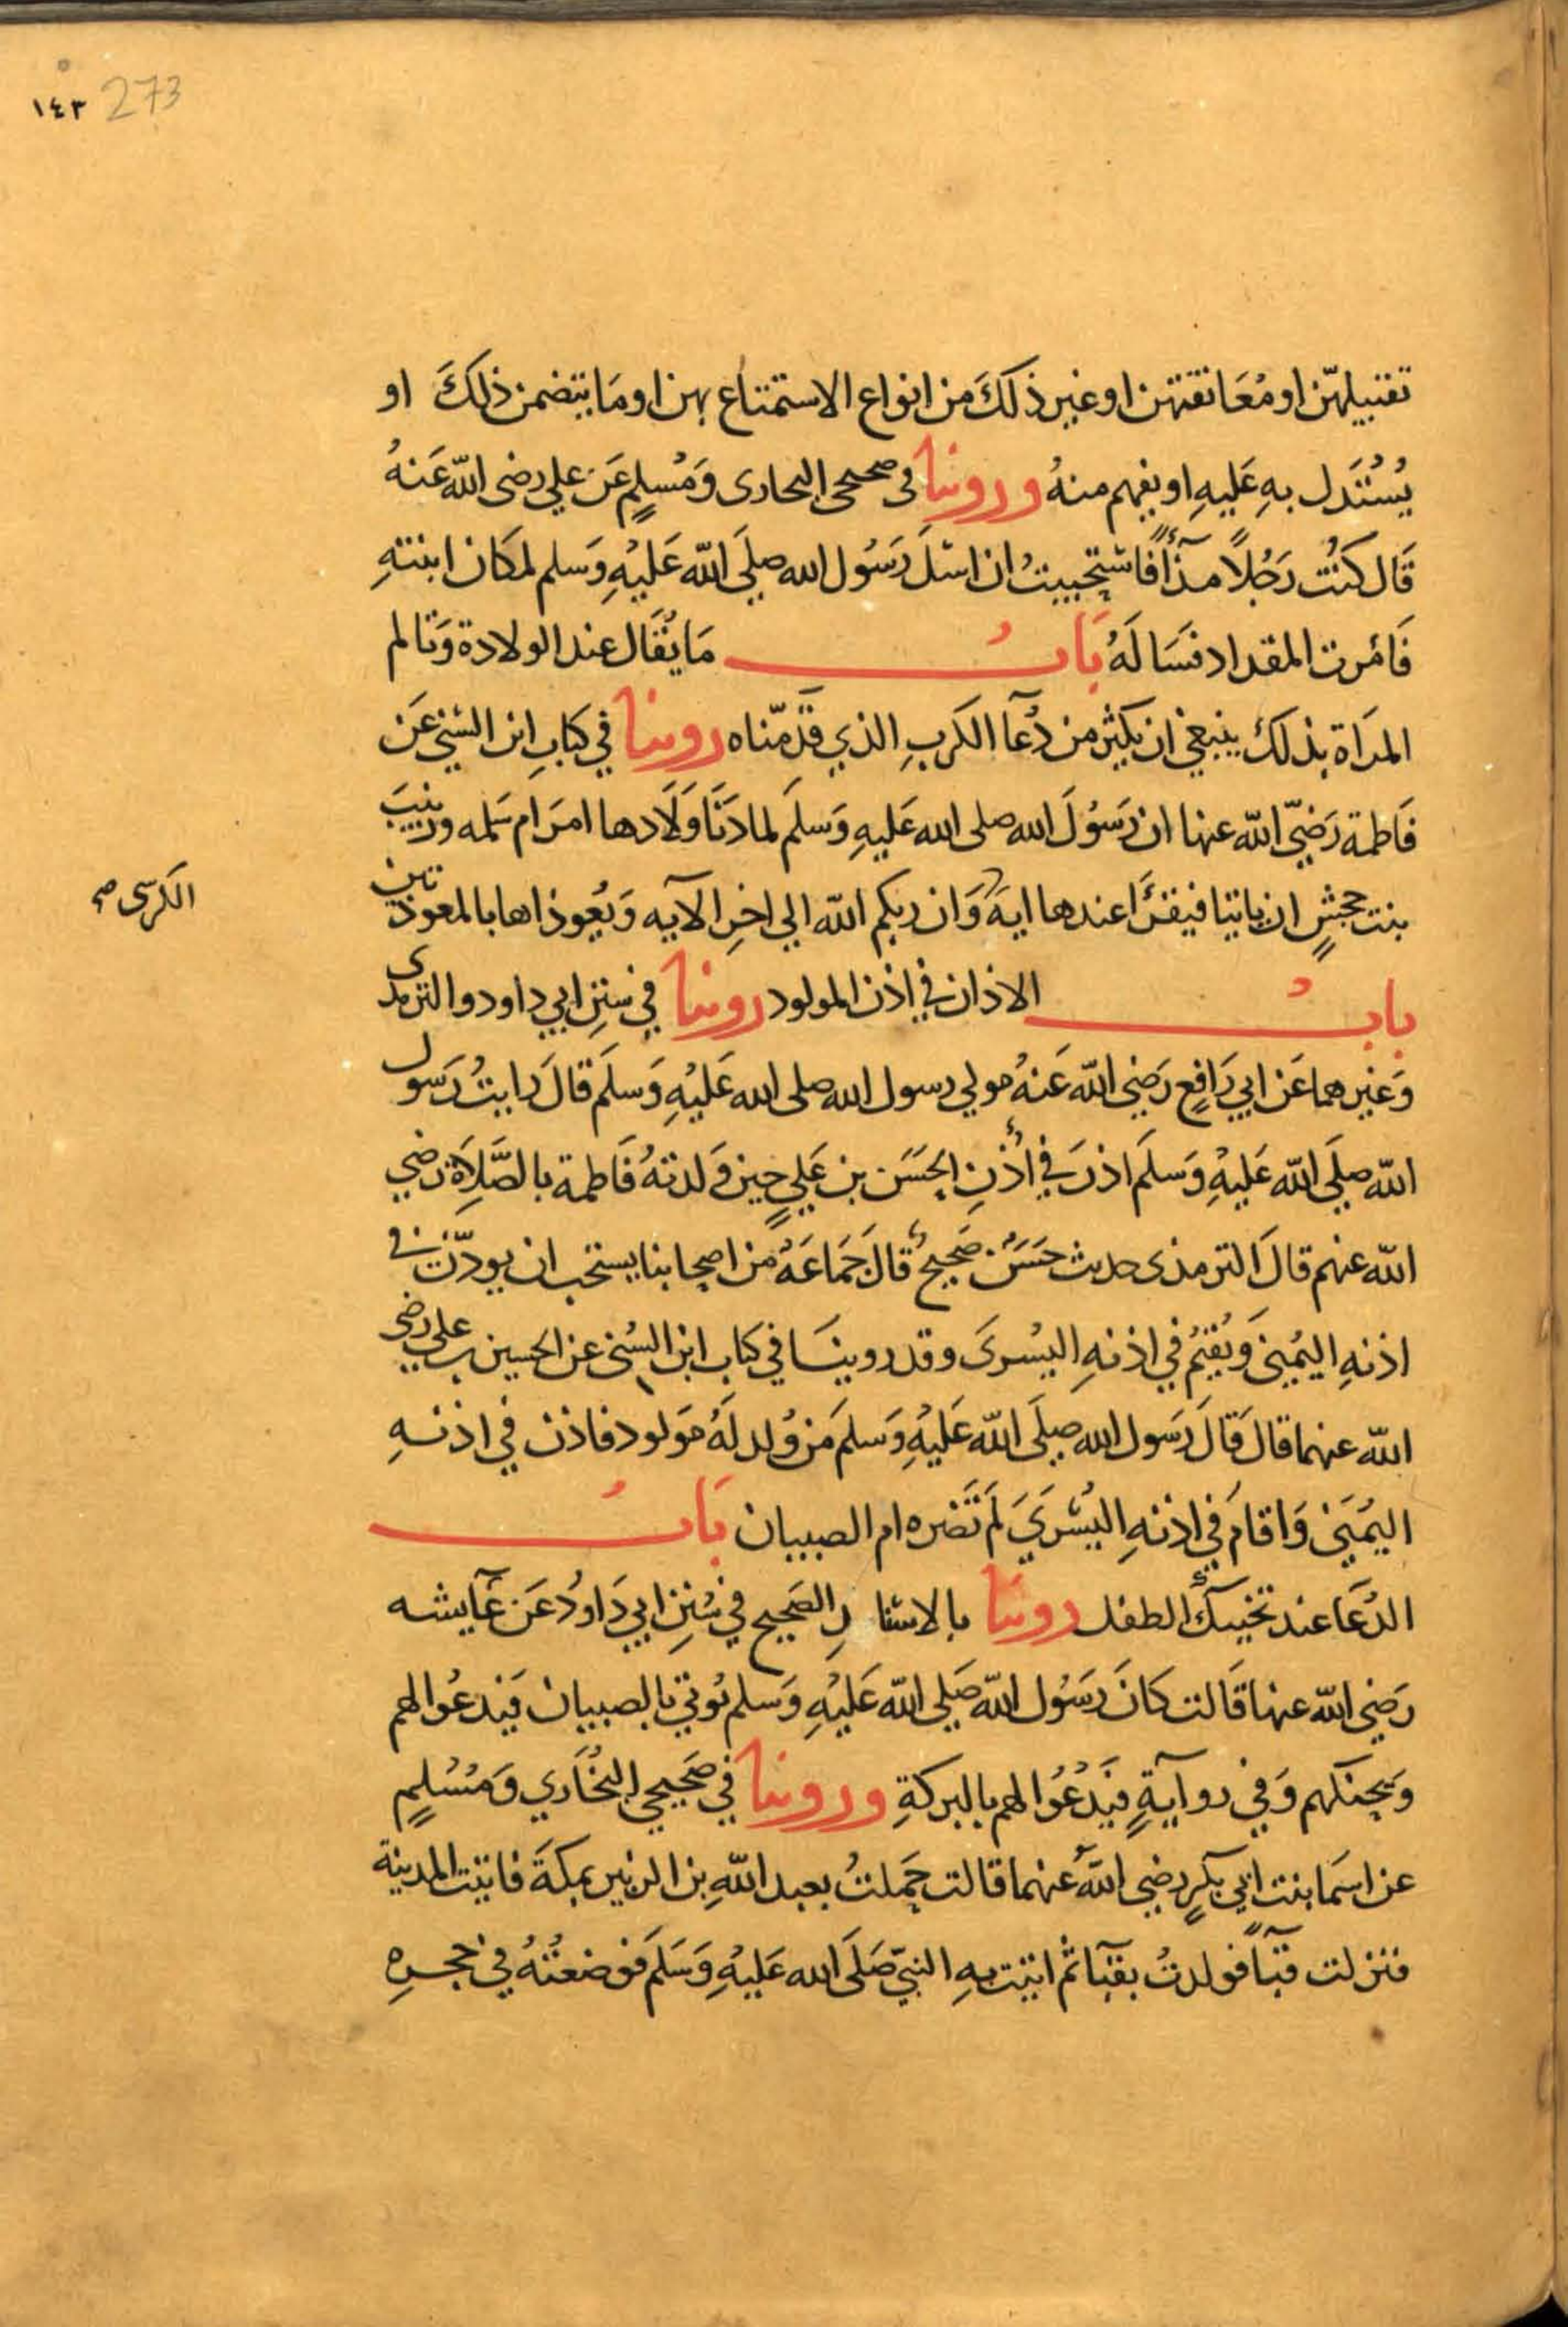 ١٤٣ 273
تقبيلهنّ او مُعَانقتهن او غير ذلكَ من انواع الاستمتاع بهن او مَا يتضمن ذلكَ او
يُسْتَدل بهِ عَليهِ او يفهم منهُ وروينا فى صحيحى البخارى وَمُسلمٍ عَن علي رضى الله عَنهُ
قَال كنْت رَجُلاً مذّآءً فاستحييتُ ان اسْلَ رَسُول الله صلي الله عَليْهِ وَسلم لمكَان ابنتهِ
فَامَرت المقداد فسَالهُ بَابُ مَا يُقال عند الولادة وَتالم
المرَاة بذلكَ ينبغي ان يكثر من دُعآ الكَربِ الذي قدّمّناه روينا في كتابِ ابن السُني عَن
فَاطمة رَضيّ الله عنها ان رَسُولَ الله صلى الله عَليهِ وَسلَم لما دَنَا وَلَادها امرَ ام سَلمه وزينبَ
بنت جحشٍ ان ياتيا فيقرَا عندها ايةَ وَان ربكم الله الي اخرِ الآيه وَيُعوذاها بالمعوذتين
الكرسى صح
بابُ الاذان في اذن المولود روينا في سننِ ابي داود والترمذى
وَغيرهما عَن ابي رَافعٍ رَضي الله عَنهُ مولي رسول الله صلى الله عَليْهِ وَسلَم قالَ رايتُ رَسول
الله صلَي الله عَليْهِ وَسلَم اذنَ في اُذنِ الحسَن بن عَليٍ حين وَلدتهُ فَاطمة بالصَّلاَة رَضي
الله عنهم قالَ الترمذى حديث حسَنٌ صَحيحٌ قالَ جَمَاعَةُ من اصحابنا يستحب ان يوذّن في
اذنهِ اليُمني وَيُقيمُ في اذنهِ اليُسرىَ وقد روينَا في كتاب ابن السُني عن الحسين بن على رضى
الله عنهما قالَ قالَ رَسول الله صلَى الله عَليْهِ وَسلمَ مَن وُلد لهُ مَولود فاذن في اذنهِ
اليُمَنى وَاقامَ في اذنهِ اليُسْرَيَ لَم تَضره ام الصبيان بَابُ
الدُعَا عند تحنيك الطفل روينَا بالاسنا دِ الصَحيح في سُننِ ابي دَاودُ عَن عَآيشه
رَضي الله عنها قَالت كانَ رَسُول الله صَلي الله عَليْهِ وَسلم يُوتي بالصبيان فيَدعُوا لهم
وَيحنكهم وَفي روآيةٍ فيَدْعُوا لهم بالبركةِ وروينا في صَحيحي البُخَاري وَمُسْلمٍ
عن اسَما بنت ابي بَكرٍ رضي اللهُ عَنهما قالت حَملتُ بعبد اللهِ بن الزبير بمكةَ فاتيت المدينة
فنزلت قبآءً فولدتُ بقبَآ ثم اتيت بهِ النبيّ صَلَى الله عَليْهِ وَسَلمَ فوضعْتُهُ في حجرِهِ